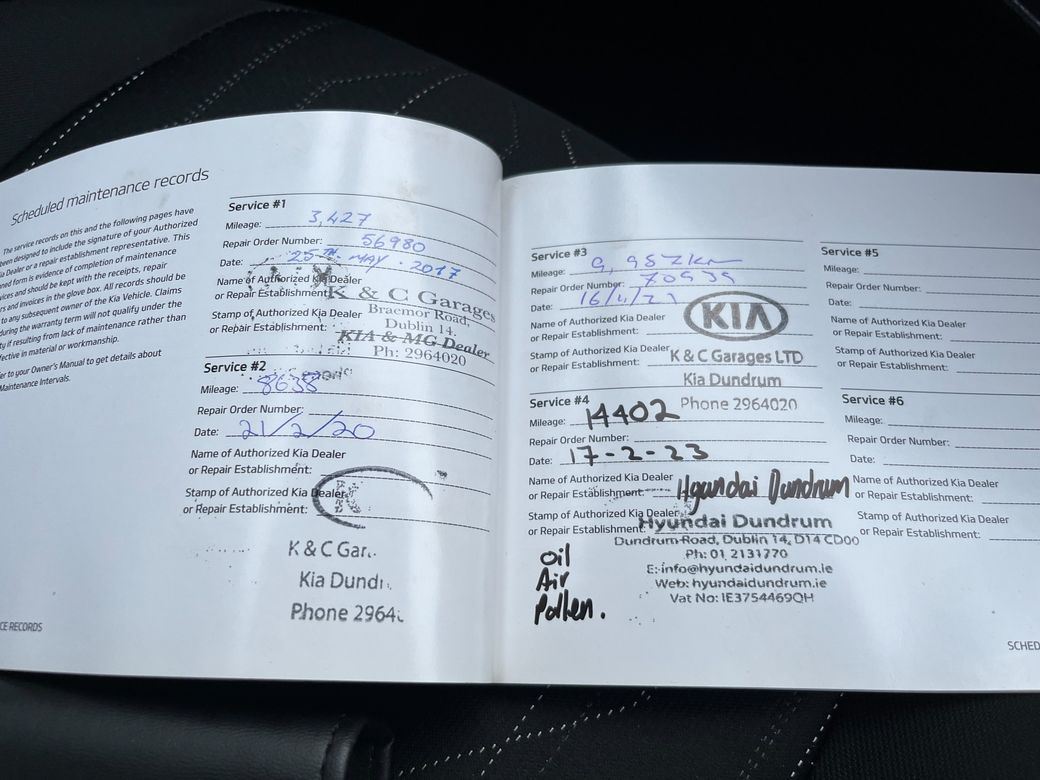 Scheduled maintenance records
The service records on this and the following pages have
been designed to include the signature of your Authorized
Dealer or a repair establishment representative. This
form is evidence of completion of maintenance
and should be kept with the receipts, repair
and invoices in the glove box. All records should be
to any subsequent owner of the Kia Vehicle. Claims
during the warranty term will not qualify under the
if resulting from lack of maintenance rather than
in material or workmanship.
to your Owner's Manual to get details about
Maintenance Intervals.
Service #1
Mileage: 3,427
Repair Order Number: 56980
Date: 25TH MAY · 2017
Name of Authorized Kia Dealer
or Repair Establishment:
K & C Garages
Stamp of Authorized Kia Dealer
Braemor Road,
or Repair Establishment:
Dublin 14.
KIA & MG Dealer
Ph: 2964020
Service #2
Mileage: 8638
Repair Order Number:
Date: 21/2/20
Name of Authorized Kia Dealer
or Repair Establishment:
Stamp of Authorized Kia Dealer
or Repair Establishment:
K & C Gar
Kia Dund
Phone 2964
RECORDS
Service #3
Mileage: 9,987km
Repair Order Number:
Date:
KIA
Name of Authorized Kia Dealer
or Repair Establishment:
Stamp of Authorized Kia Dealer
or Repair Establishment:
K & C Garages LTD
Kia Dundrum
Phone 2964020
Service #4
Mileage: 14402
Repair Order Number:
Date: 17-2-23
Name of Authorized Kia Dealer
or Repair Establishment: Hyundai Dundrum
Stamp of Authorized Kia Dealer
or Repair Establishment:
Hyundai Dundrum
Dundrum Road, Dublin 14, D14 CD00
Ph: 01 2131770
E: info@hyundaidundrum.ie
Web: hyundaidundrum.ie
Vat No: IE3754469QH
Oil
Air
Pollen.
Service #5
Mileage:
Repair Order Number:
Date:
Name of Authorized Kia Dealer
or Repair Establishment:
Stamp of Authorized Kia Dealer
or Repair Establishment:
Service #6
Mileage:
Repair Order Number:
Date:
Name of Authorized Kia Dealer
or Repair Establishment:
Stamp of Authorized Kia Dealer
or Repair Establishment:
SCHED